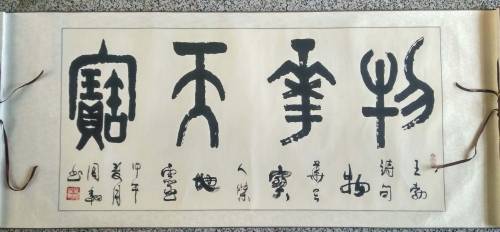 物華天寶
王勃
詩句
物
華天
寶
人傑
地
靈
甲午
月
周